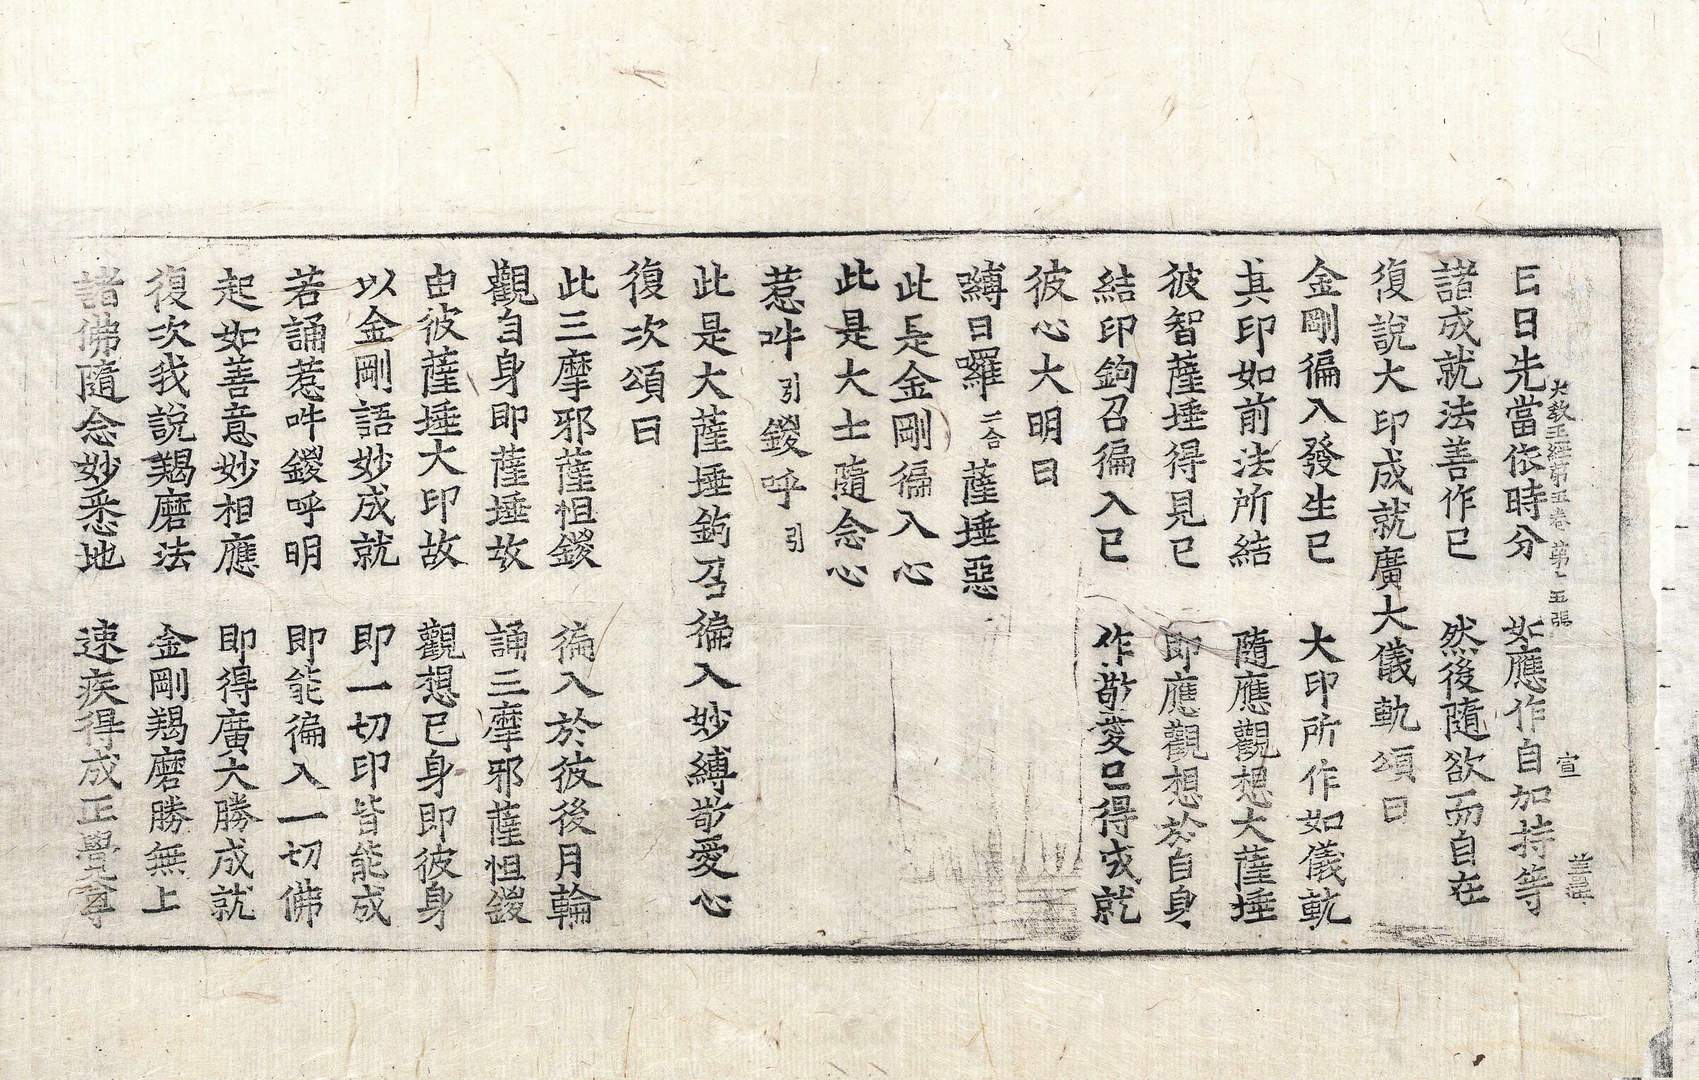 日日先當依時分　如應作自加持等
諸成就法善作已　然後隨欲而自在
復說大印成就廣大儀軌頌曰
金剛徧入發生已　大印所作如儀軌
其印如前法所結　隨應觀想大薩埵
彼智薩埵得見已　即應觀想於自身
結印鉤召徧入已　作敬愛已得成就
彼心大明曰
嚩日囉二合薩埵惡
此是金剛徧入心
此是大士隨念心
惹吽引鑁呼引
此是大薩埵鉤召徧入妙縛敬愛心
復次頌曰
此三摩邪薩怛鑁　徧入於彼後月輪
觀自身即薩埵故　誦三摩邪薩怛鑁
由彼薩埵大印故　觀想已身即彼身
以金剛語妙成就　即一切印皆能成
若誦惹吽鑁呼明　即能徧入一切佛
起如善意妙相應　即得廣大勝成就
復次我說羯磨法　金剛羯磨勝無上
諸佛隨念妙悉地　速疾得成正覺尊